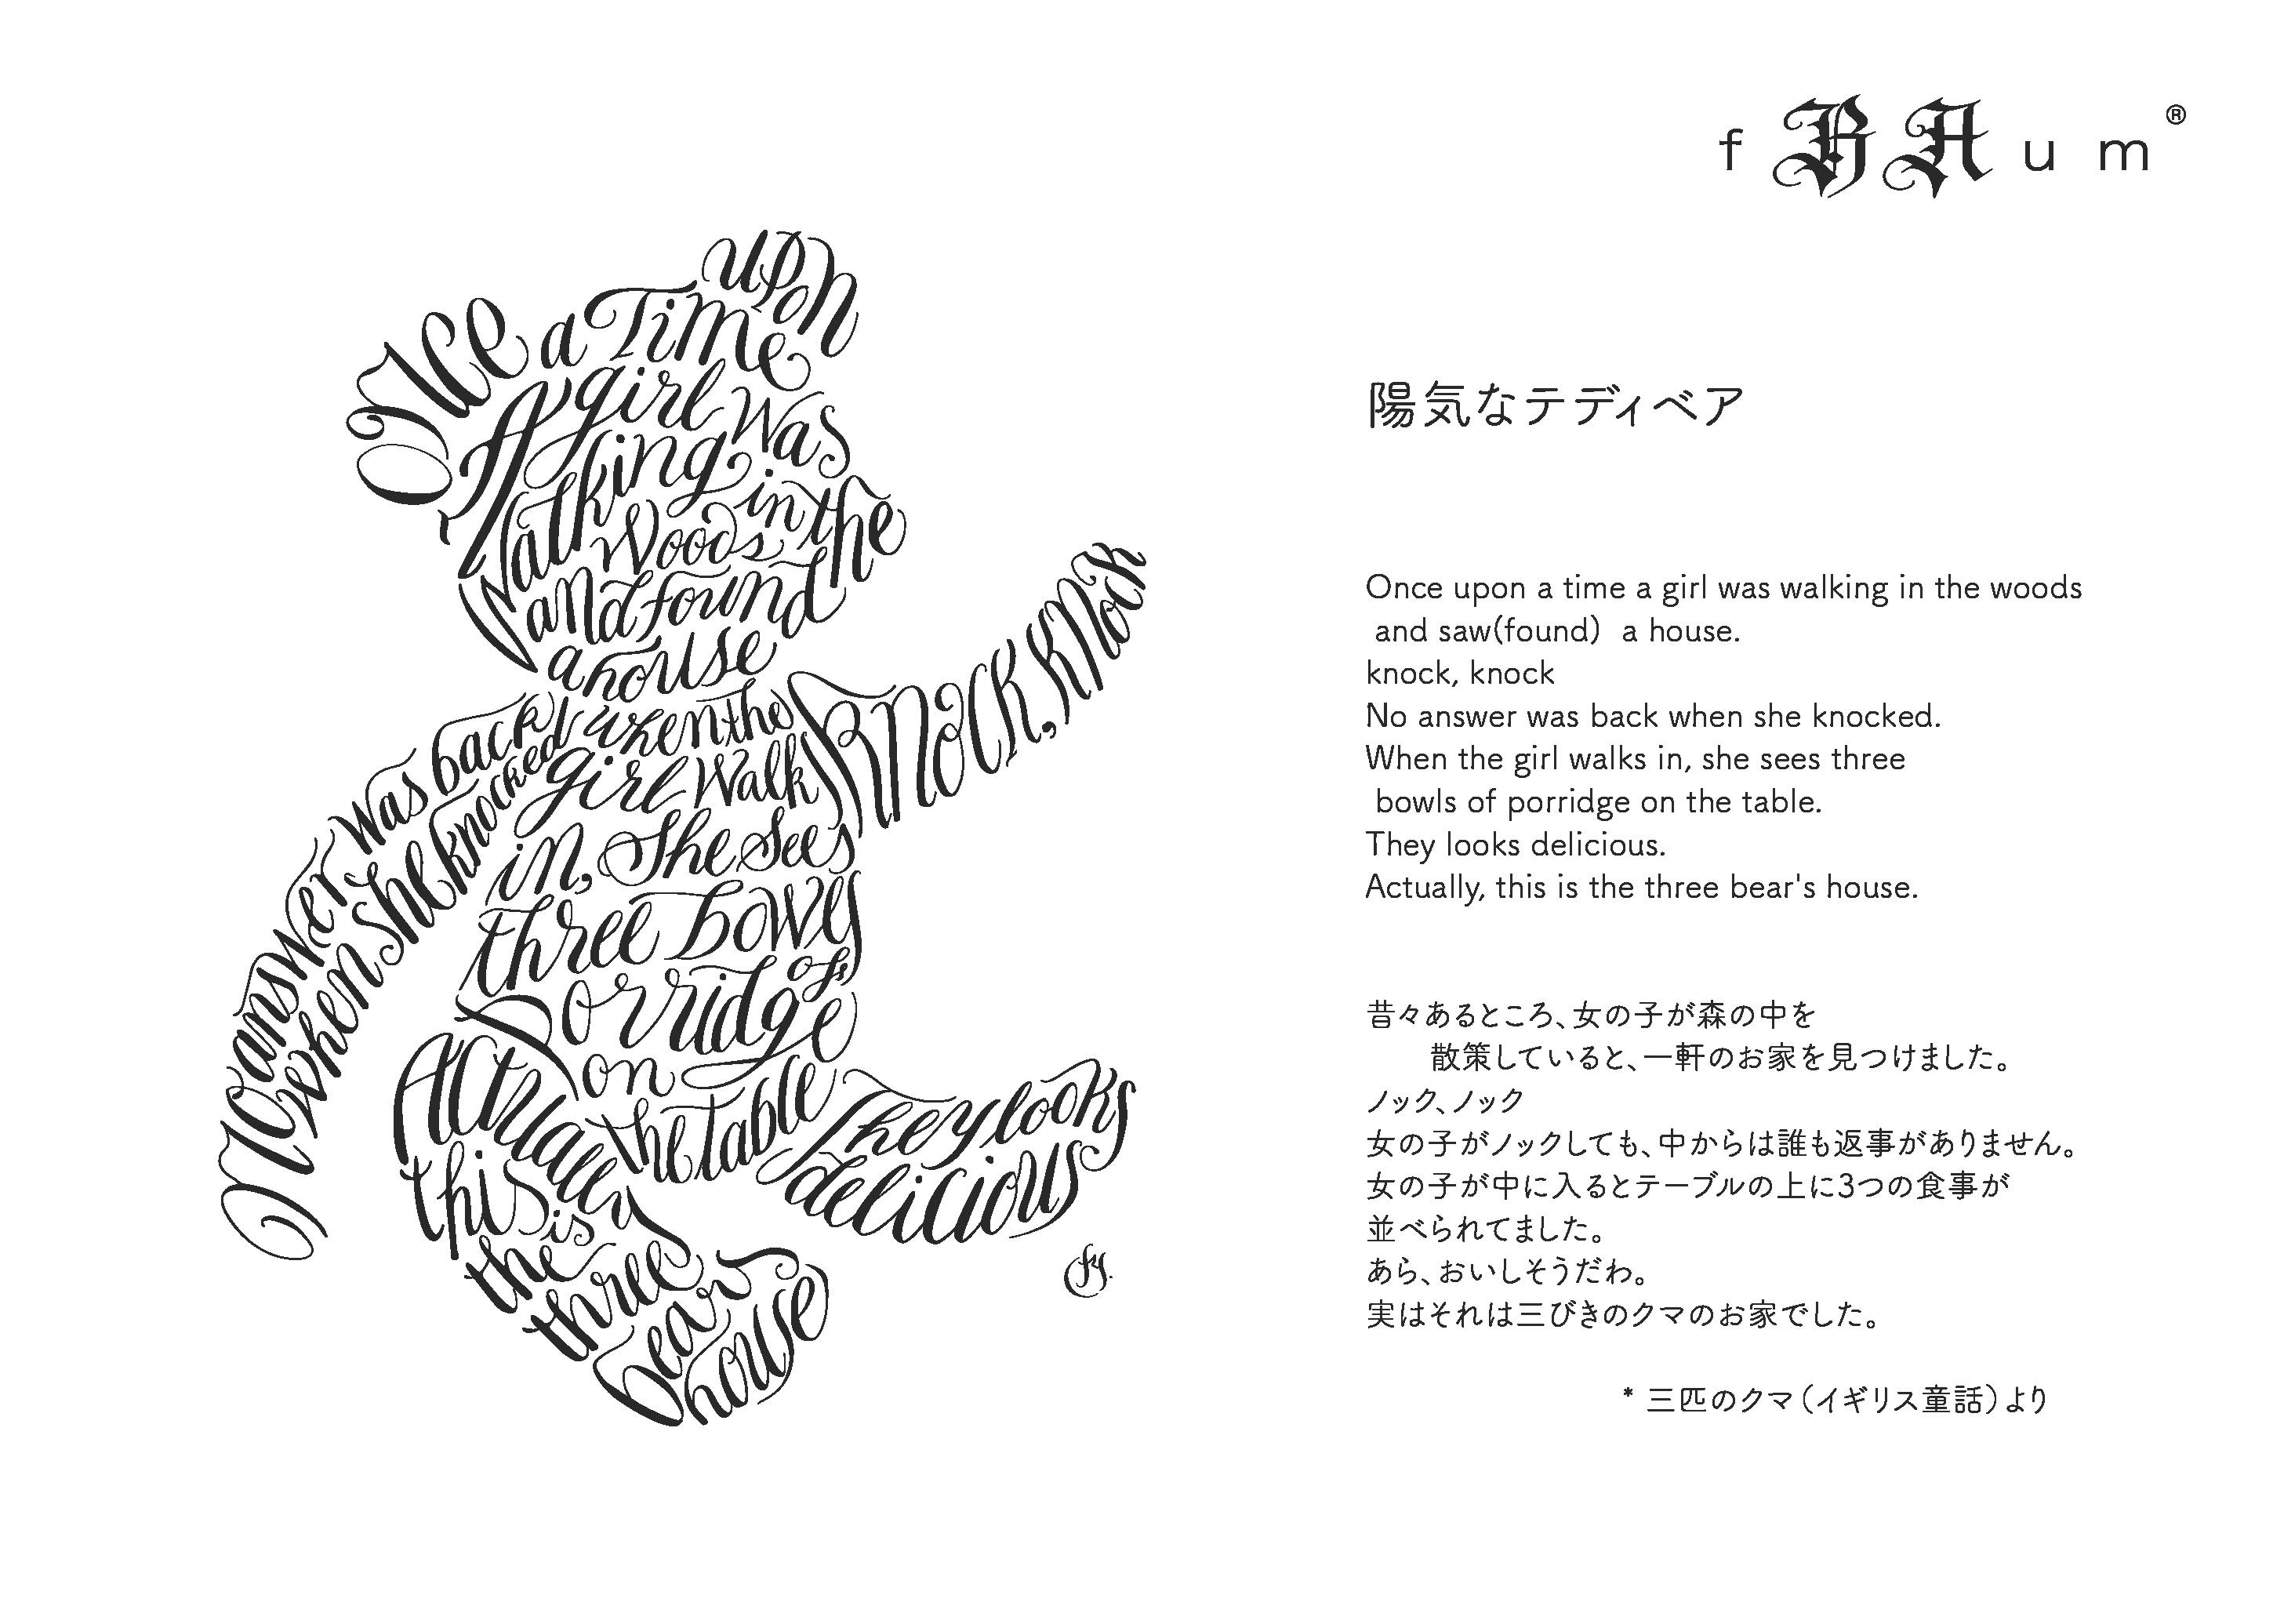 f BA u m ®
Once upon
a Time
A girl was
walking in the
woods
and found
a house
Knock, Knock
No answer was back
when she knocked
when the
girl walk
in, She Sees
three bowls
of
Porridge
on
the table
They looks
delicious
Actually
this is
the
three
bears
house
fy.
陽気なテディベア
Once upon a time a girl was walking in the woods
and saw(found) a house.
knock, knock
No answer was back when she knocked.
When the girl walks in, she sees three
bowls of porridge on the table.
They looks delicious.
Actually, this is the three bear's house.
昔々あるところ、女の子が森の中を
散策していると、一軒のお家を見つけました。
ノック、ノック
女の子がノックしても、中からは誰も返事がありません。
女の子が中に入るとテーブルの上に3つの食事が
並べられてました。
あら、おいしそうだわ。
実はそれは三びきのクマのお家でした。
* 三匹のクマ（イギリス童話）より